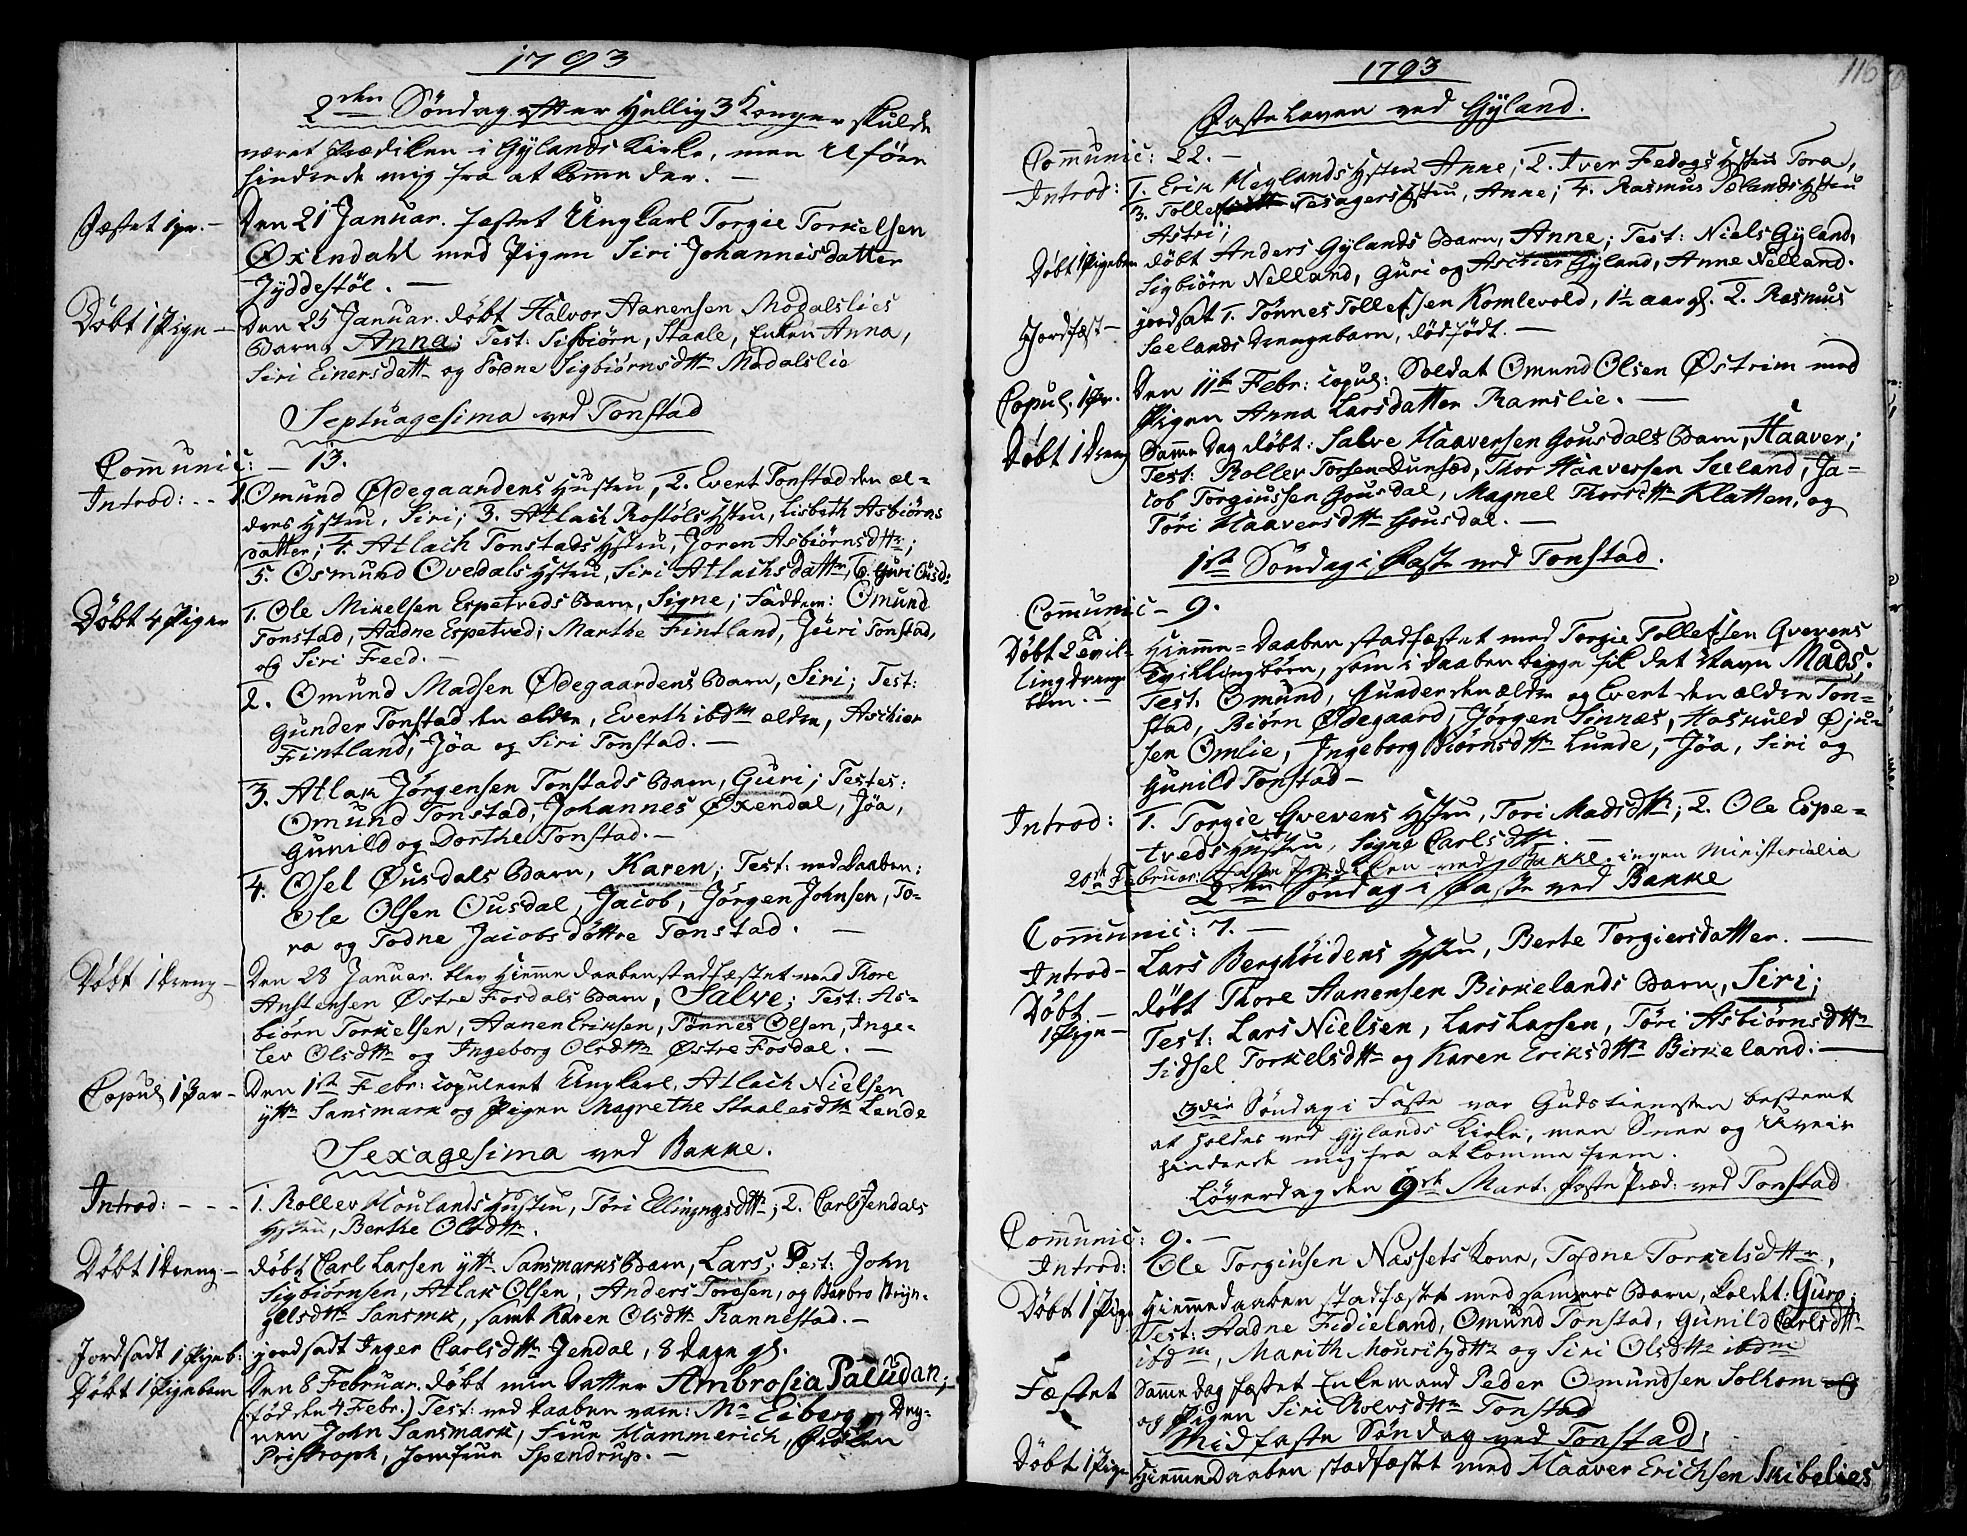 1793
2den Søndag efter Hellig 3 Konger skulde
været Prædiken i Gylands Kirke, men Uføre
hindrede mig fra at komme der. —
Fæstet 1 pr. — Den 21 Januar. fæstet Ungkarl Torgie Torkelsen
Øxendahl med Pigen Siri Johannisdatter
Jyddestøl. —
Døbt 1 Pige — Den 25 Januar. døbt Halvor Aanensen Modalslies
Barn, Anna; Test: Sigbiørn, Staale, Enken Anna,
Siri Einersdattr og Todne Sigbiørnsdttr Modalslie
Septuagesima ved Tonstad
Communic: — 13.
Introd: - - 1. Omund Ødegaardens Hustru, 2. Evert Tonstad den æl-
dres Hstru, Siri; 3. Atlach Rostøls Hstru, Lisbeth Asbiørns
datter; 4. Atlach Tonstads Hstru, Joren Asbiørnsdttr;
5. Osmund Ovedals Hstru, Siri Atlachsdattr, 6. Guri Ousd:
Døbt 4 Piger 1. Ole Mikelsen Espetveds Barn, Signe; Faddere: Omund
Tonstad, Aadne Espetved; Marthe Fintland, Jüri Tonstad,
og Siri Feed. —
2. Omund Madsen Ødegaardens Barn, Siri; Test:
Gunder Tonstad den ældre, Everth ibdm ældre, Aschier
Fintland, Jøa og Siri Tonstad. —
3. Atlak Jørgensen Tonstads Barn, Guri; Testes:
Omund Tonstad, Johannes Øxendal, Jøa,
Gunild og Dorthe Tonstad. —
4. Osel Ousdals Barn, Karen; Test: ved Daaben:
Ole Olsen Ousdal, Jacob, Jørgen Johnsen, To-
ra og Todne Jacobs døttre Tonstad. —
Døbt 1 Dreng — Den 28 Januar. blev Hiemme daaben stadfæstet med Thore
Anstensen Østre Fosdals Barn, Salve; Test: As-
biørn Torkelsen, Aanen Eriksen, Tønnes Olsen, Inge-
lev Olsdttr og Ingeborg Olsdttr Østre Fosdal. —
Copul 1 Par — Den 1ste Febr: copuleret Ungkarl, Atlach Nielsen
yttr Sansmark og Pigen Magrethe Staalesdttr Lende
Sexagesima ved Bakke.
Introd: - - - 1. Roller Houlands Hustru, Tøri Ellingsdttr; 2. Carl Jendals
Hstru, Berthe Olsdttr.
Døbt 1 Dreng — døbt Carl Larsen yttr Sansmarks Barn, Lars; Test: John
Sigbiørnsen, Atlak Olsen, Anders Toresen, og Barbro Bryn-
gelsdttr Sansmk, samt Karen Olsdttr Rannestad. —
Jordsadt 1 Pigeb: jordsadt Inger Carlsdttr Jendal, 8 dage gl.
Døbt 1 Pigebarn Den 8 Februar. døbt min Datter Ambrosia Paludan;
(fød den 4 Febr.) Test: ved Daaben vare: Mr Eiberg og Dreng-
en John Sansmark, Frue Hammerich, Frøken
Pristroph, Jomfrue Spendrup. —
1793
116
Fastelaven ved Gyland.
Communic: 22. —
Introd: 1. Erik Heglands Hstru Anne; 2. Iver Fedogs Hstru Tora,
3. Tollef Tesagers Hstru, Anne; 4. Rasmus Sælands Hstru
Astri;
Døbt 1 Pigebrn døbt Anders Gylands Barn, Anne; Test: Niels Gyland,
Sigbiørn Nelland, Guri og Aschier Gyland, Anne Nelland.
Jordfæst — jordsat 1. Tønnes Tollefsen Komlevold, 1½ aar gl. 2. Rasmus
Seelands Drengebarn, dødfødt. —
Copul. 1 Pr. Den 11te Febr: copul: Soldat Omund Olsen Østrim med
Pigen Anna Larsdatter Ramslie. —
Døbt 1 Dreng Samme Dag døbt: Salve Haaversen Gousdals Barn, Haaver;
Test: Roller Torsen Dunsæd, Thor Haaversen Seeland, Ja-
cob Torgiussen Gousdal, Magnel Thorsdttr Klatten, og
Tøri Haaversdttr Gousdal. —
1ste Søndag i Faste ved Tonstad.
Communic — 9.
Døbt 2 Tvil- Hiemme-Daaben stadfæstet med Torgie Tollefsen Gvevens
lingdrenge Tvillingbørn, som i Daaben begge fik det Navn Mads.
børn. — Test: Omund, Gunder den ældre og Evert den ældre Ton-
stad, Biørn Ødegaard, Jørgen Sinnæs, Haskuld Øju-
sen Omlie, Ingeborg Biørnsdttr Lunde, Jøa, Siri og
Gunild Tonstad —
Introd: 1. Torgie Gvevens Hstru, Tori Madsdttr; 2. Ole Espe-
tveds Hustru, Signe Carlsdttr
20de Februar: Faste Prædiken ved Bakke. ingen Ministerialia
2den Søndag i Faste ved Bakke
Communic: 7. —
Introd — Lars Berghøidens Hstru, Berte Torgiersdatter. —
Døbt — døbt Thore Aanensen Birkelands Barn, Siri;
1 Pige — Test: Lars Nielsen, Lars Larsen, Tøri Asbiørnsdttr
Sidsel Torkelsdttr og Karen Eriksdttr Birkeland: —
3die Søndag i Faste var Gudstienesten bestemt
at holdes ved Gylands Kirke, men Snee og Uveir
hindrede mig fra at komme frem.
Løverdag den 9de Mart: Faste Præd: ved Tonstad
Communic: 9. —
Introd: Ole Torgiusen Næssets Kone, Todne Torkelsdttr,
Døbt 1 Pige Hiemmedaaben stadfæstet med sammes Barn, kaldet: Guro;
Test: Aadne Fidieland, Omund Tonstad, Gunild Carlsdttr
ibdm, Marith Mouritzdttr og Siri Olsdttr ibdm
Fæstet Samme dag fæstet Enkemand Peder Omundsen Solhom
og Pigen Siri Rolvsdttr Tonstad
Midfaste Søndag ved Tonstad:
Døbt 1 Pige Hiemmedaaben stadfæstet med Haaver Erichsen Skibelies